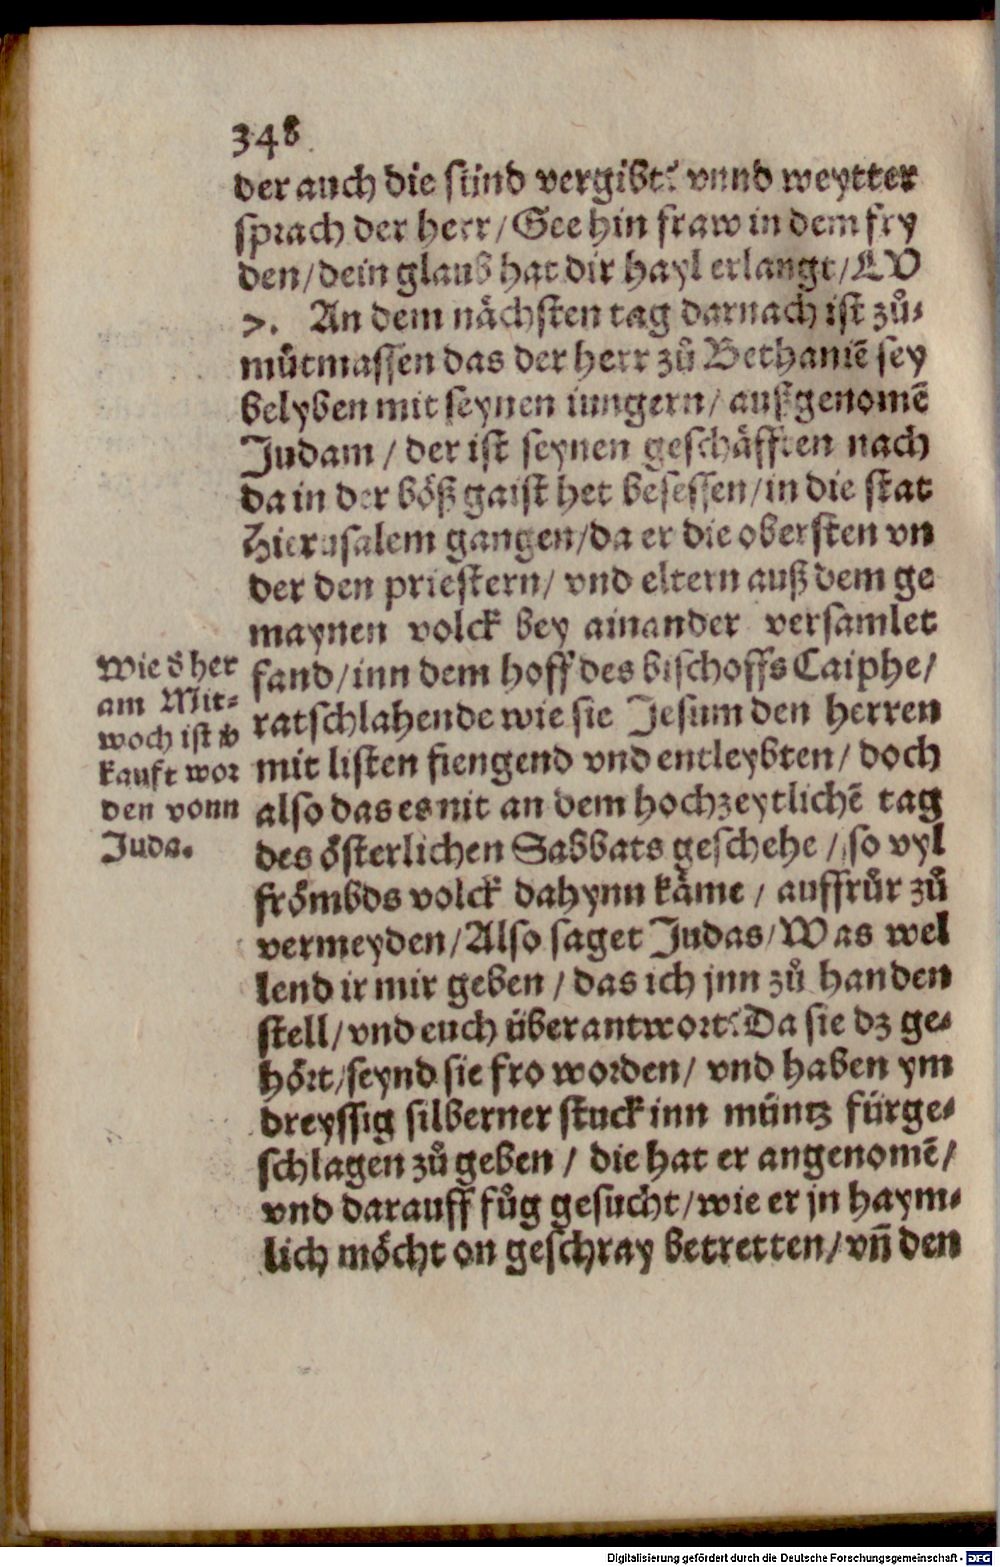 348
der auch die sünd vergibt? vnnd weytter
sprach der herr/ See hin fraw in dem fry
den/ dein glaub hat dir hayl erlangt/ LV
>. An dem nächsten tag darnach ist zů⸗
můtmassen das der herr zů Bethaniē sey
belyben mit seynen iungern/ außgenomē
Judam / der ist seynen geschäfften nach
da in der böß gaist het besessen/ in die stat
Hierusalem gangen/ da er die obersten vn
der den priestern/ vnd eltern auß dem ge
maynen volck bey ainander versamlet
fand/ inn dem hoff des bischoffs Caiphe/
ratschlahende wie sie Jesum den herren
mit listen fiengend vnd entleybten/ doch
also das es nit an dem hochzeytlichē tag
des österlichen Sabbats geschehe / so vyl
frömbds volck dahynn käme / auffrůr zů
vermeyden/ Also saget Judas/ Was wel
lend ir mir geben / das ich jnn zů handen
stell/ vnd euch überantwort? Da sie dz ge⸗
hört/ seynd sie fro worden/ vnd haben ym
dreyssig silberner stuck inn müntz fürge⸗
schlagen zů geben / die hat er angenomē/
vnd darauff fůg gesucht/ wie er jn haym⸗
lich möcht on geschray betretten/ vñ den
Wie d̕ her
am Mit⸗
woch ist v̕
kauft wor
den vonn
Juda.
Digitalisierung gefördert durch die Deutsche Forschungsgemeinschaft - DFG